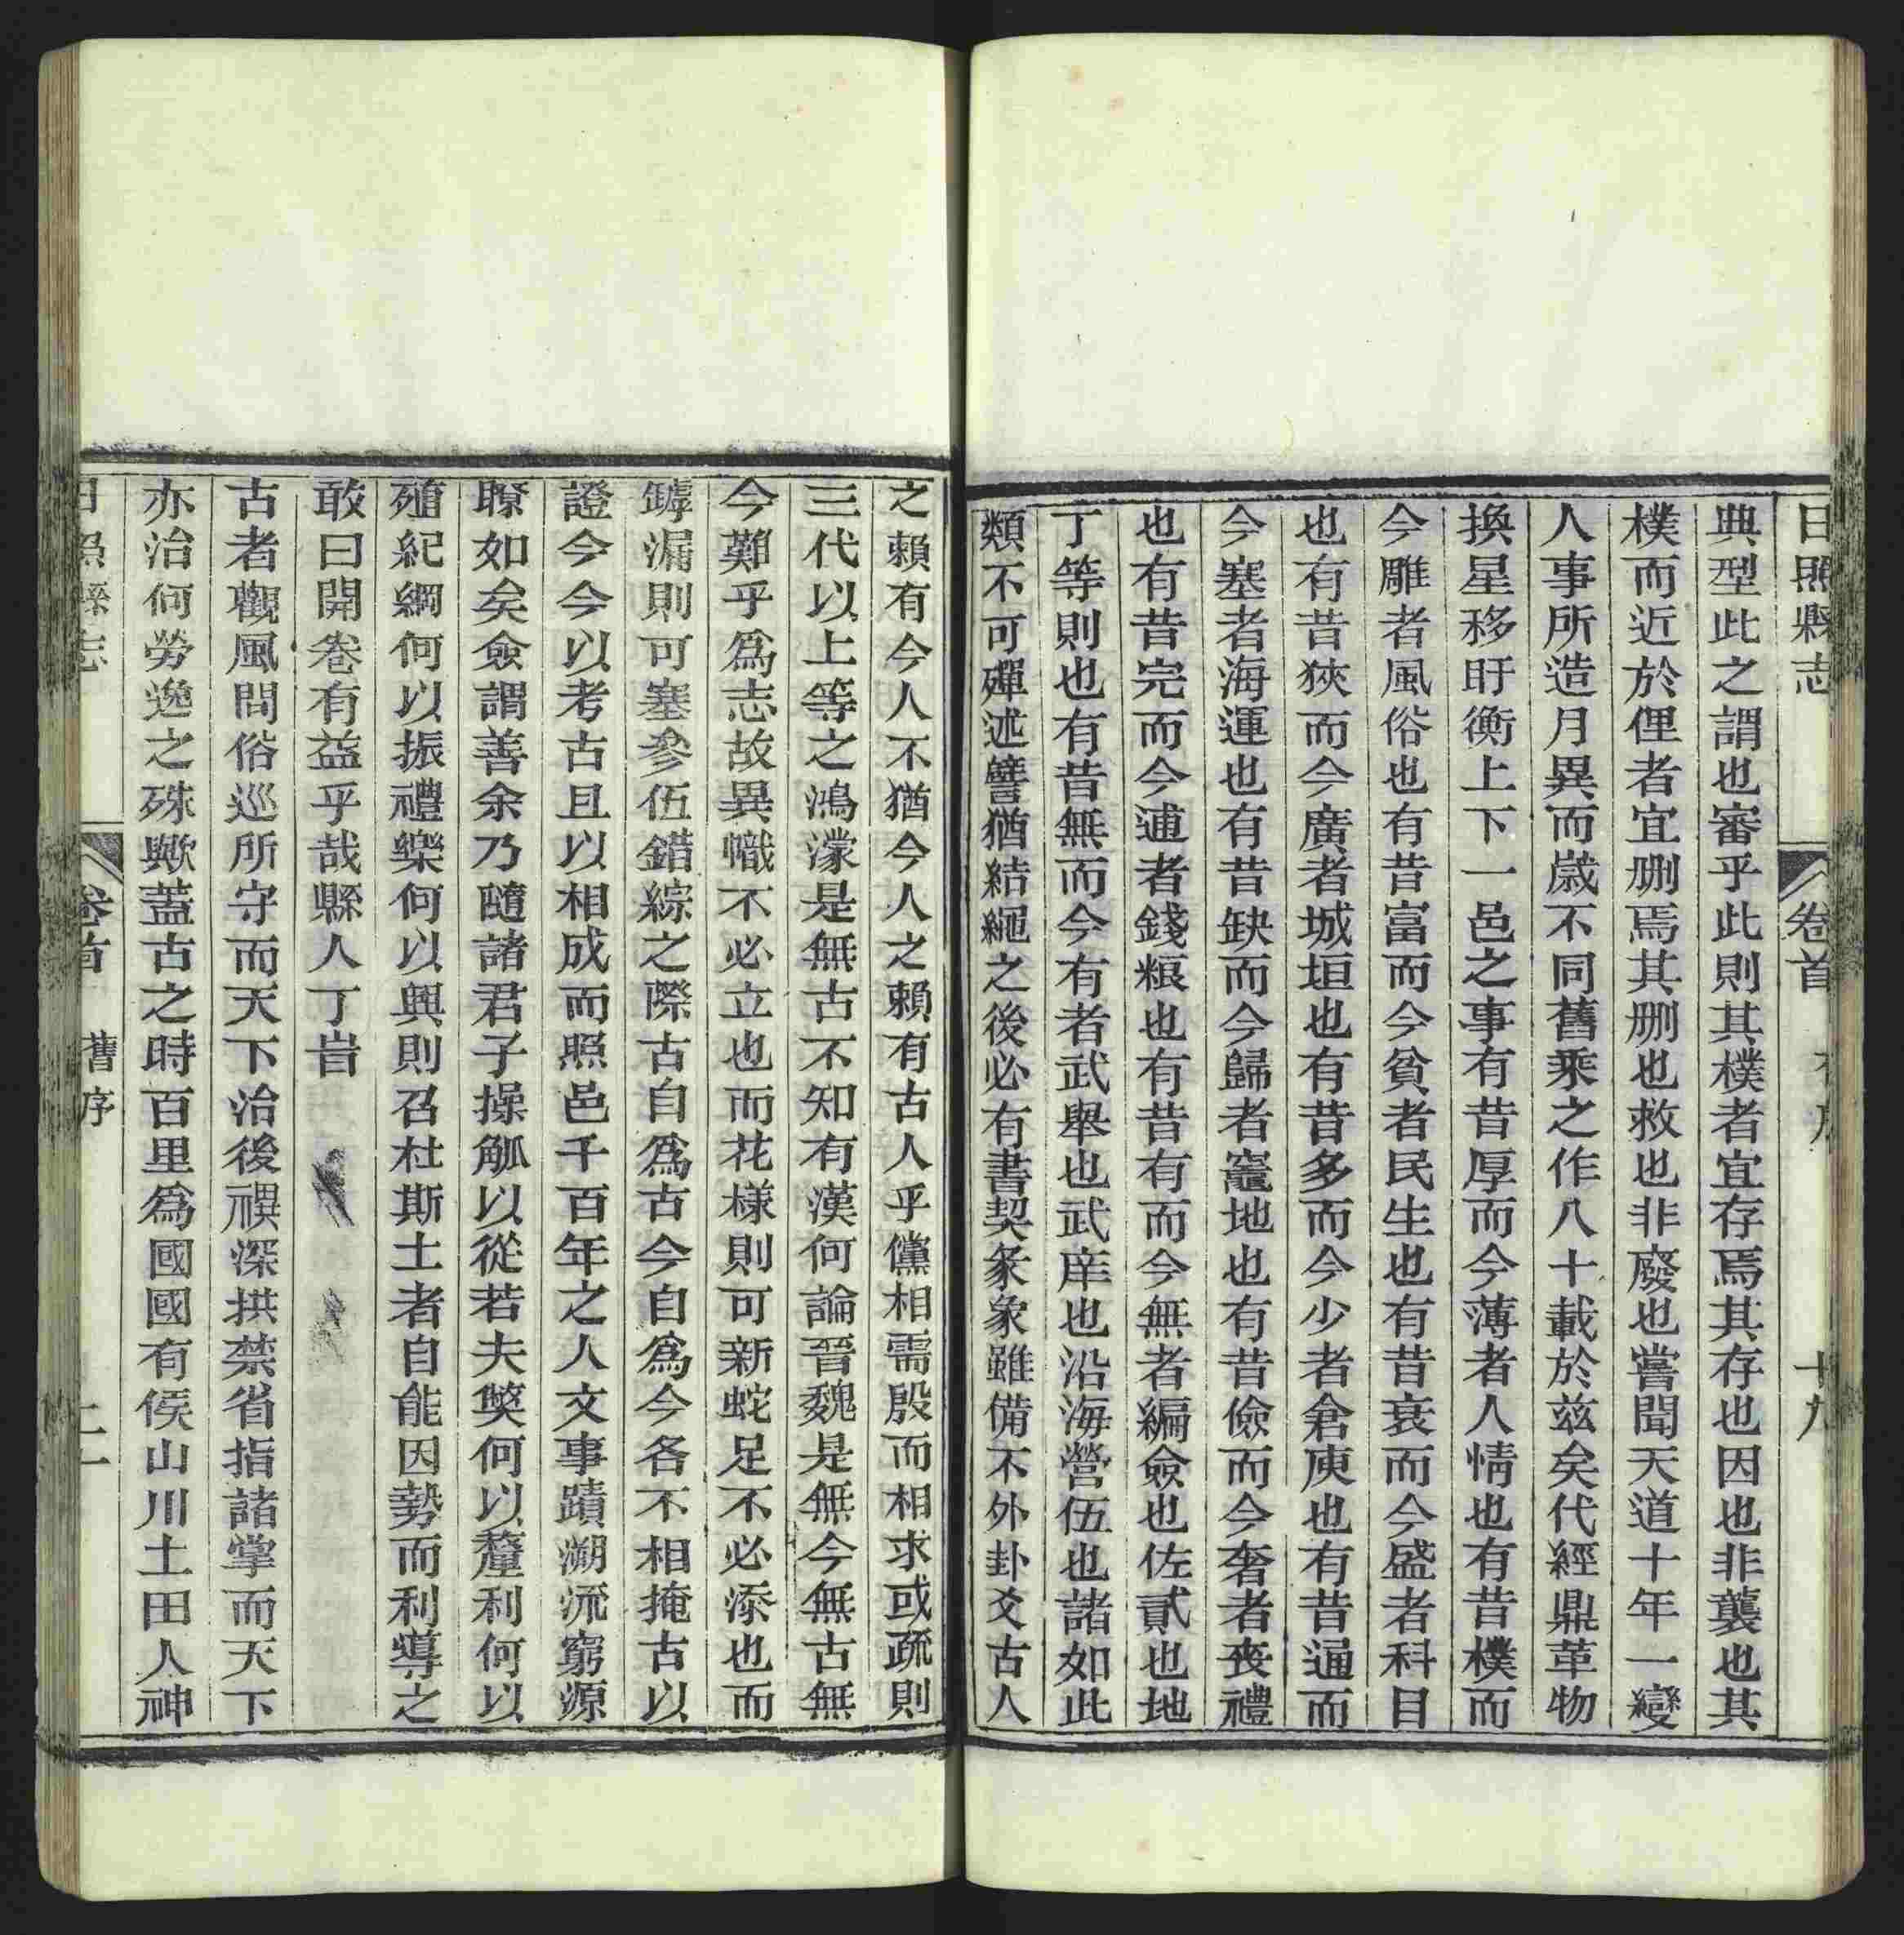 日照縣志 卷首 十九
典型此之謂也審乎此則其樸者宜存焉其存也因也非襲也其
樸而近於俚者宜刪焉其刪也救也非廢也嘗聞天道十年一變
人事所造月異而歲不同舊乘之作八十載於兹矣代經鼎革物
換星移盱衡上下一邑之事有昔厚而今薄者人情也有昔樸而
今雕者風俗也有昔富而今貧者民生也有昔衰而今盛者科目
也有昔狹而今廣者城垣也有昔多而今少者倉庾也有昔通而
今塞者海運也有昔缺而今歸者竈地也有昔儉而今奢者喪禮
也有昔完而今逋者錢粮也有昔有而今無者編僉也佐貳也地
丁等則也有昔無而今有者武舉也武庠也沿海營伍也諸如此
類不可殫述譬猶結繩之後必有書契彖象雖備不外卦爻古人
之賴有今人不猶今人之賴有古人乎儻相需殷而相求或疏則
三代以上等之鴻濛是無古不知有漢何論晉魏是無今無古無
今難乎爲志故異幟不必立也而花樣則可新蛇足不必添也而
罅漏則可塞參伍錯綜之際古自爲古今自爲今各不相掩古以
證今今以考古且以相成而照邑千百年之人文事蹟溯流窮源
瞭如矣僉謂善余乃隨諸君子操觚以從若夫獘何以釐利何以
殖紀綱何以振禮樂何以興則召杜斯土者自能因勢而利導之
敢曰開卷有益乎哉縣人丁岧
古者觀風問俗巡所守而天下治後禩深拱禁省指諸掌而天下
亦治何勞逸之殊歟蓋古之時百里爲國國有侯山川土田人神
日照縣志 卷首 舊序